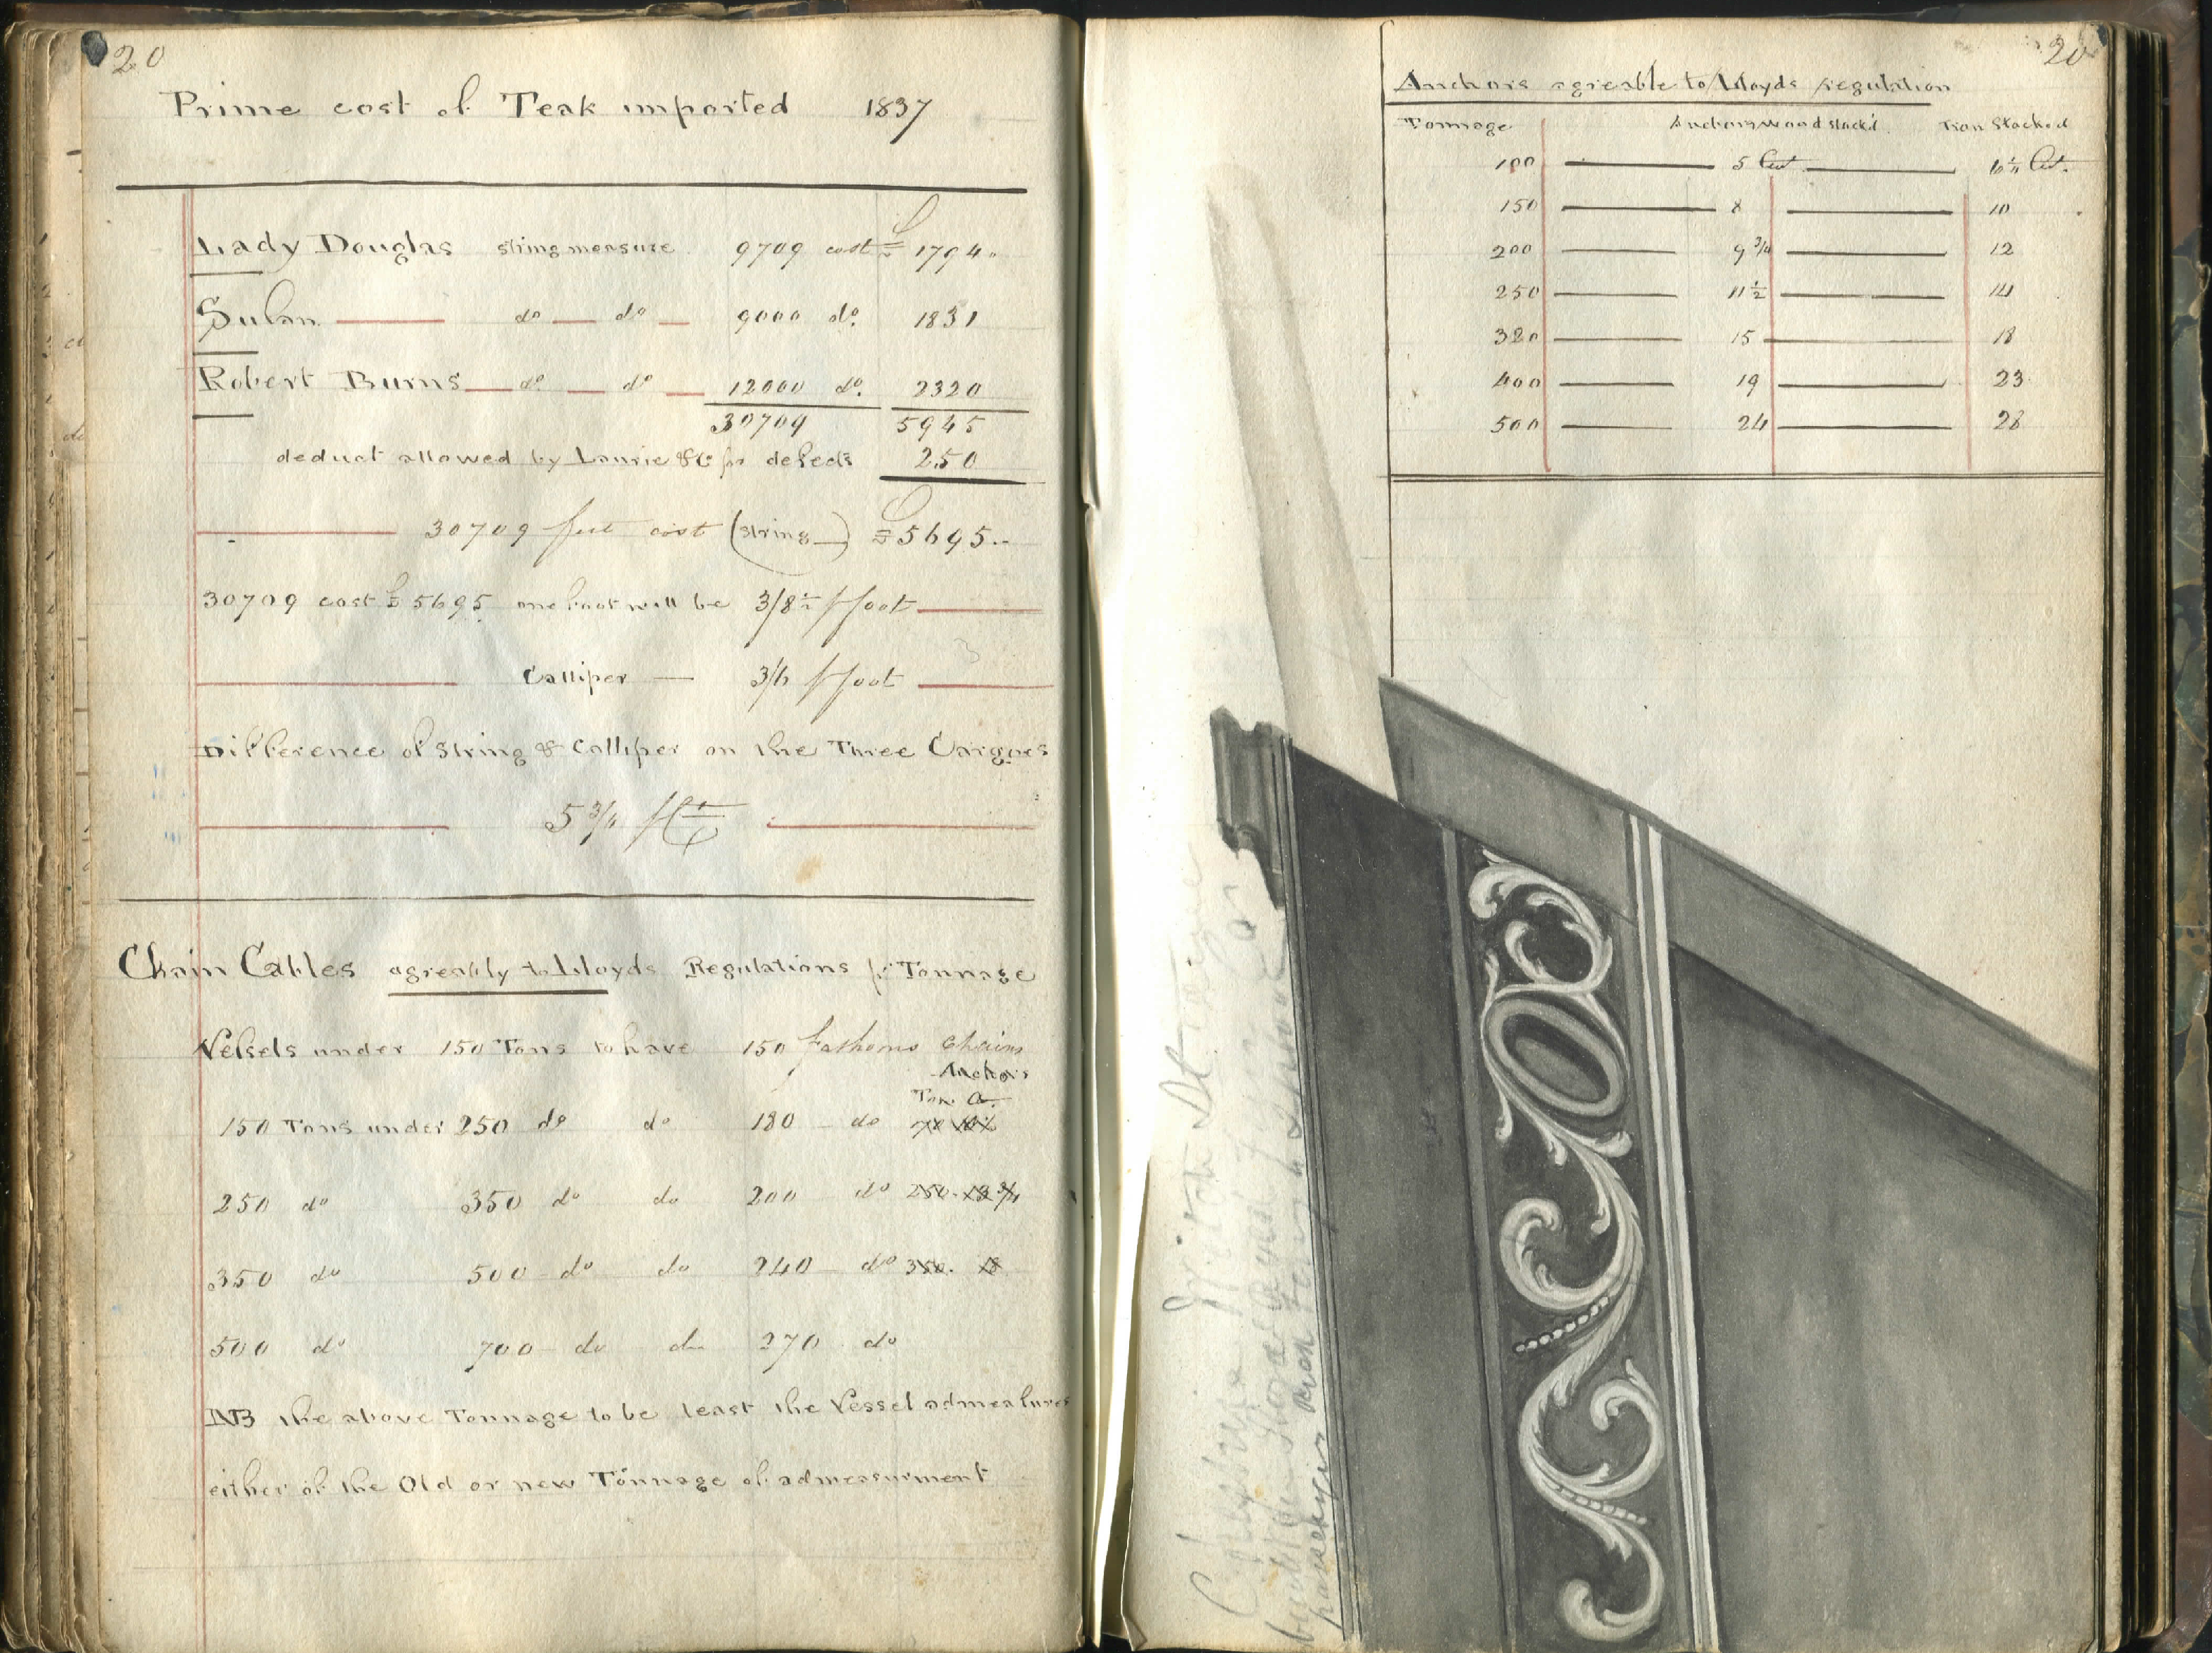 20
Prime cost of Teak imported 1837
£
Lady Douglas string measure 9709 cost = 1794.
Sulan do do 9000 do. 1831
Robert Burns do do 12000 do. 2320
30709 5945
deduct allowed by Laurie & Co for defects 250
30709 feet cost (string) £5695..
30709 cost £5695 one foot will be 3/8½ p foot
Calliper — 3/6 p foot
Difference of String & Calliper on the Three Cargoes
5 3/4 p Ct
Chain Cables agreably to Lloyds Regulations pr Tonnage
Vessels under 150 Tons to have 150 fathoms Chains
Anchors
Ton. C.
150 Tons under 250 do do 180 do
250 do 350 do do 200 do 250. 13 3/4
350 do 500 do do 240 do 350. 18
500 do 700 do do 270 do
NB the above Tonnage to be least the Vessel admeasures
either of the Old or new Tonnage of admeasurment
20
Anchors agreable to Lloyds regulation
Tonnage Anchors wood stock'd Iron Stocked
100 5 Cwt. 6½ Cwt.
150 8 10
200 9 3/4 12
250 11 ½ 14
320 15 18
400 19 23
500 24 28